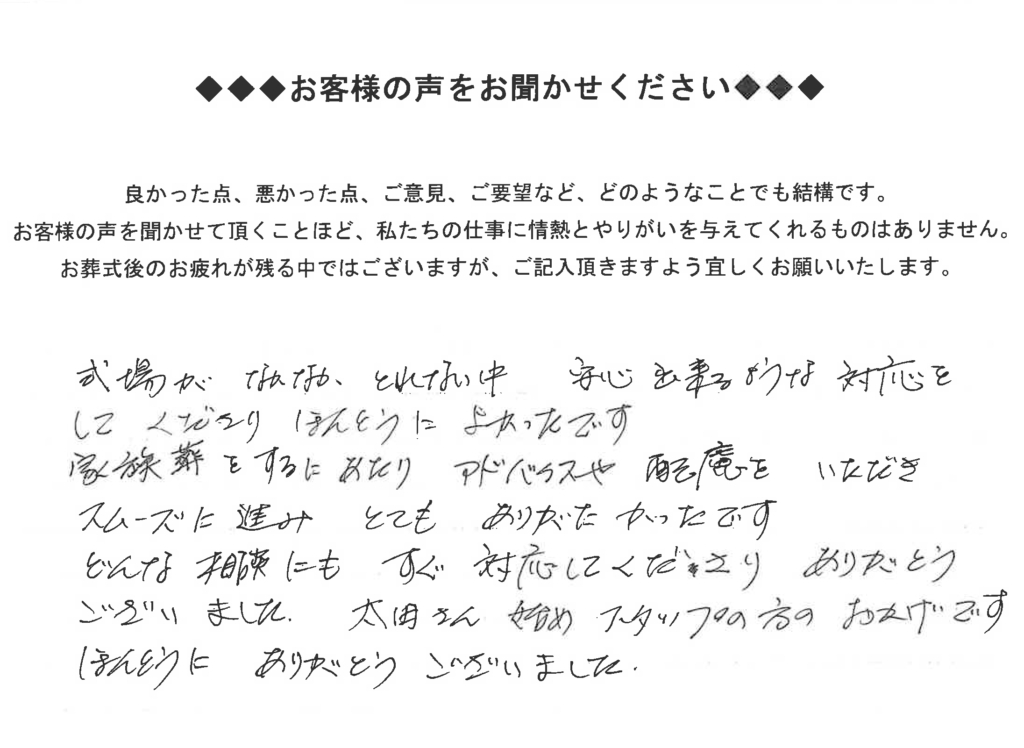 ◆◆◆お客様の声をお聞かせください◆◆◆
良かった点、悪かった点、ご意見、ご要望など、どのようなことでも結構です。
お客様の声を聞かせて頂くことほど、私たちの仕事に情熱とやりがいを与えてくれるものはありません。
お葬式後のお疲れが残る中ではございますが、ご記入頂きますよう宜しくお願いいたします。
式場が なかなか、とれない中 安心出来るような 対応を
して くださり ほんとうに よかったです
家族葬をするにあたり アドバイスや 配慮を いただき
スムーズに 進み とても ありがたかったです
どんな 相談にも すぐ 対応してくださり ありがとう
ございました. 太田さん 始め スタッフの方の おかげです
ほんとうに ありがとう ございました.